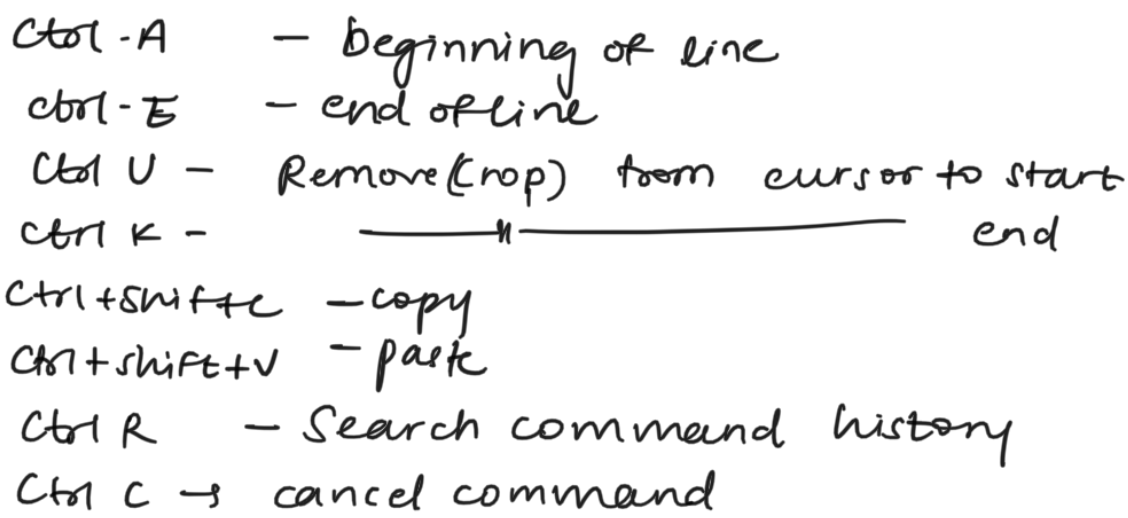 Ctrl-A - beginning of line
ctrl-E - end of line
Ctrl U - Remove (Crop) from cursor to start
Ctrl K - ——〃—— end
Ctrl+Shift+C - copy
Ctrl+shift+V - paste
Ctrl R - Search command history
Ctrl C → cancel command